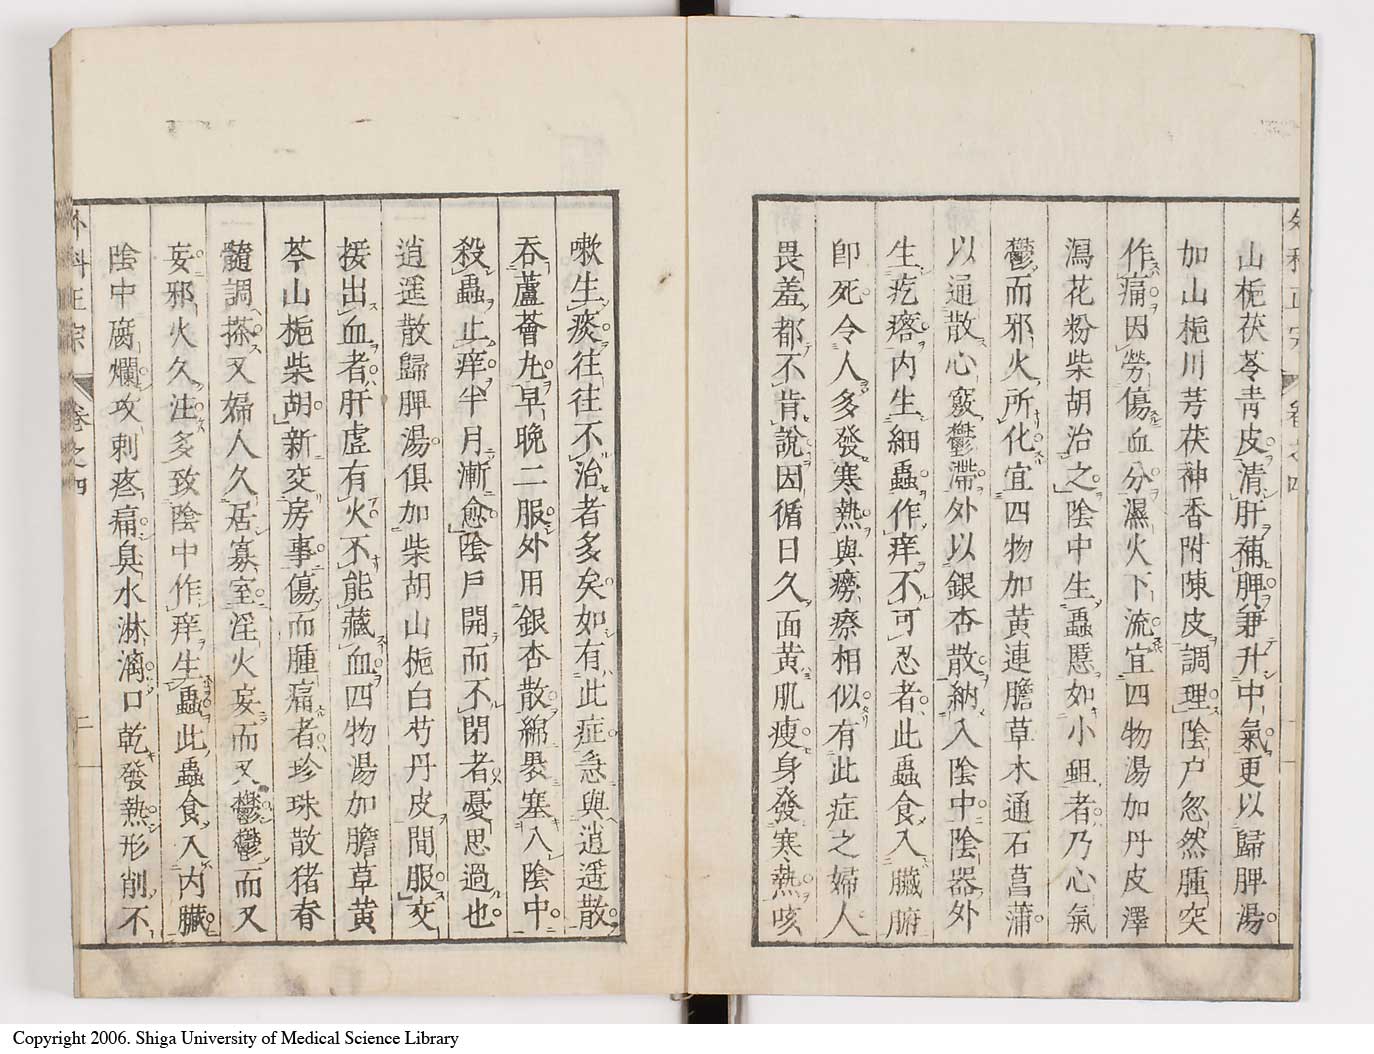 外科正宗 卷之四 一
山梔茯苓青皮清肝補脾兼升中氣更以歸脾湯
加山梔川芎茯神香附陳皮調理陰戶忽然腫突
作痛因勞傷血分濕火下流宜四物湯加丹皮澤
瀉花粉柴胡治之陰中生蟲䘌如小蛆者乃心氣
鬱而邪火所化宜四物加黃連膽草木通石菖蒲
以通散心竅鬱滯外以銀杏散納入陰中陰器外
生疙瘩內生細蟲作痒不可忍者此蟲食入臟腑
卽死令人多發寒熱與癆瘵相似有此症之婦人
畏羞都不肯說因循日久面黃肌瘦身發寒熱咳
嗽生痰往往不治者多矣如有此症急與逍遥散
吞蘆薈丸早晚二服外用銀杏散綿裹塞入陰中
殺蟲止痒半月漸愈陰戶開而不閉者憂思過也
逍遥散歸脾湯俱加柴胡山梔白芍丹皮間服交
接出血者肝虛有火不能藏血四物湯加膽草黃
芩山梔柴胡新交房事傷而腫痛者珍珠散猪脊
髓調搽又婦人久居寡室淫火妄而又鬱鬱而又
妄邪火久注多致陰中作痒生蟲此蟲食入內臟
陰中腐爛攻刺疼痛臭水淋漓口乾發熱形削不
外科正宗 卷之四 二
Copyright 2006. Shiga University of Medical Science Library